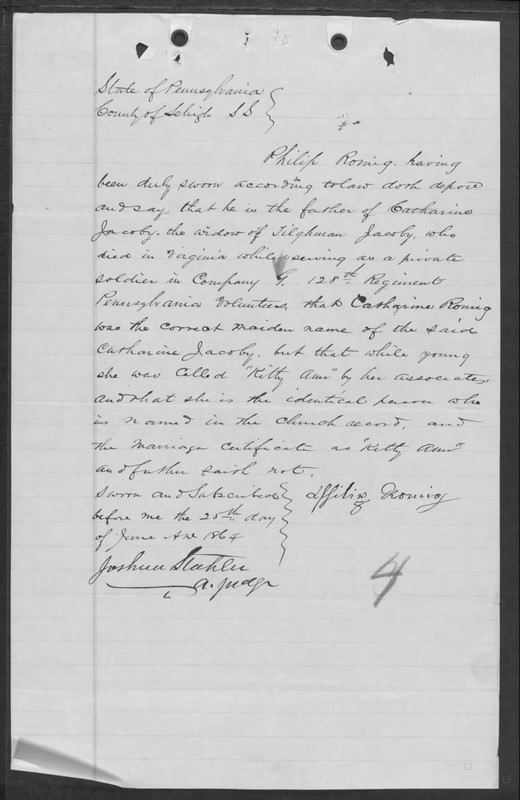 State of Pennsylvania
County of Lehigh SS
Philip Romig. having
been duly sworn according to law doth depose
and say that he is the father of Catharine
Jacoby. the widow of Tilghman Jacoby, who
died in Virginia while serving as a private
soldier in Company G. 128th Regiment
Pennsylvania Volunteers, that Catharine Romig
was the correct maiden name of the said
Catharine Jacoby. but that while young
she was called "Kitty Ann" by her associates,
and that she is the identical person who
is named in the church record, and
the marriage certificate as "Kitty Ann"
and further saith not.
Sworn and Subscribed
before me the 25th day
of June AD 1864
Romig
Joshua Stahler
a. judge
4